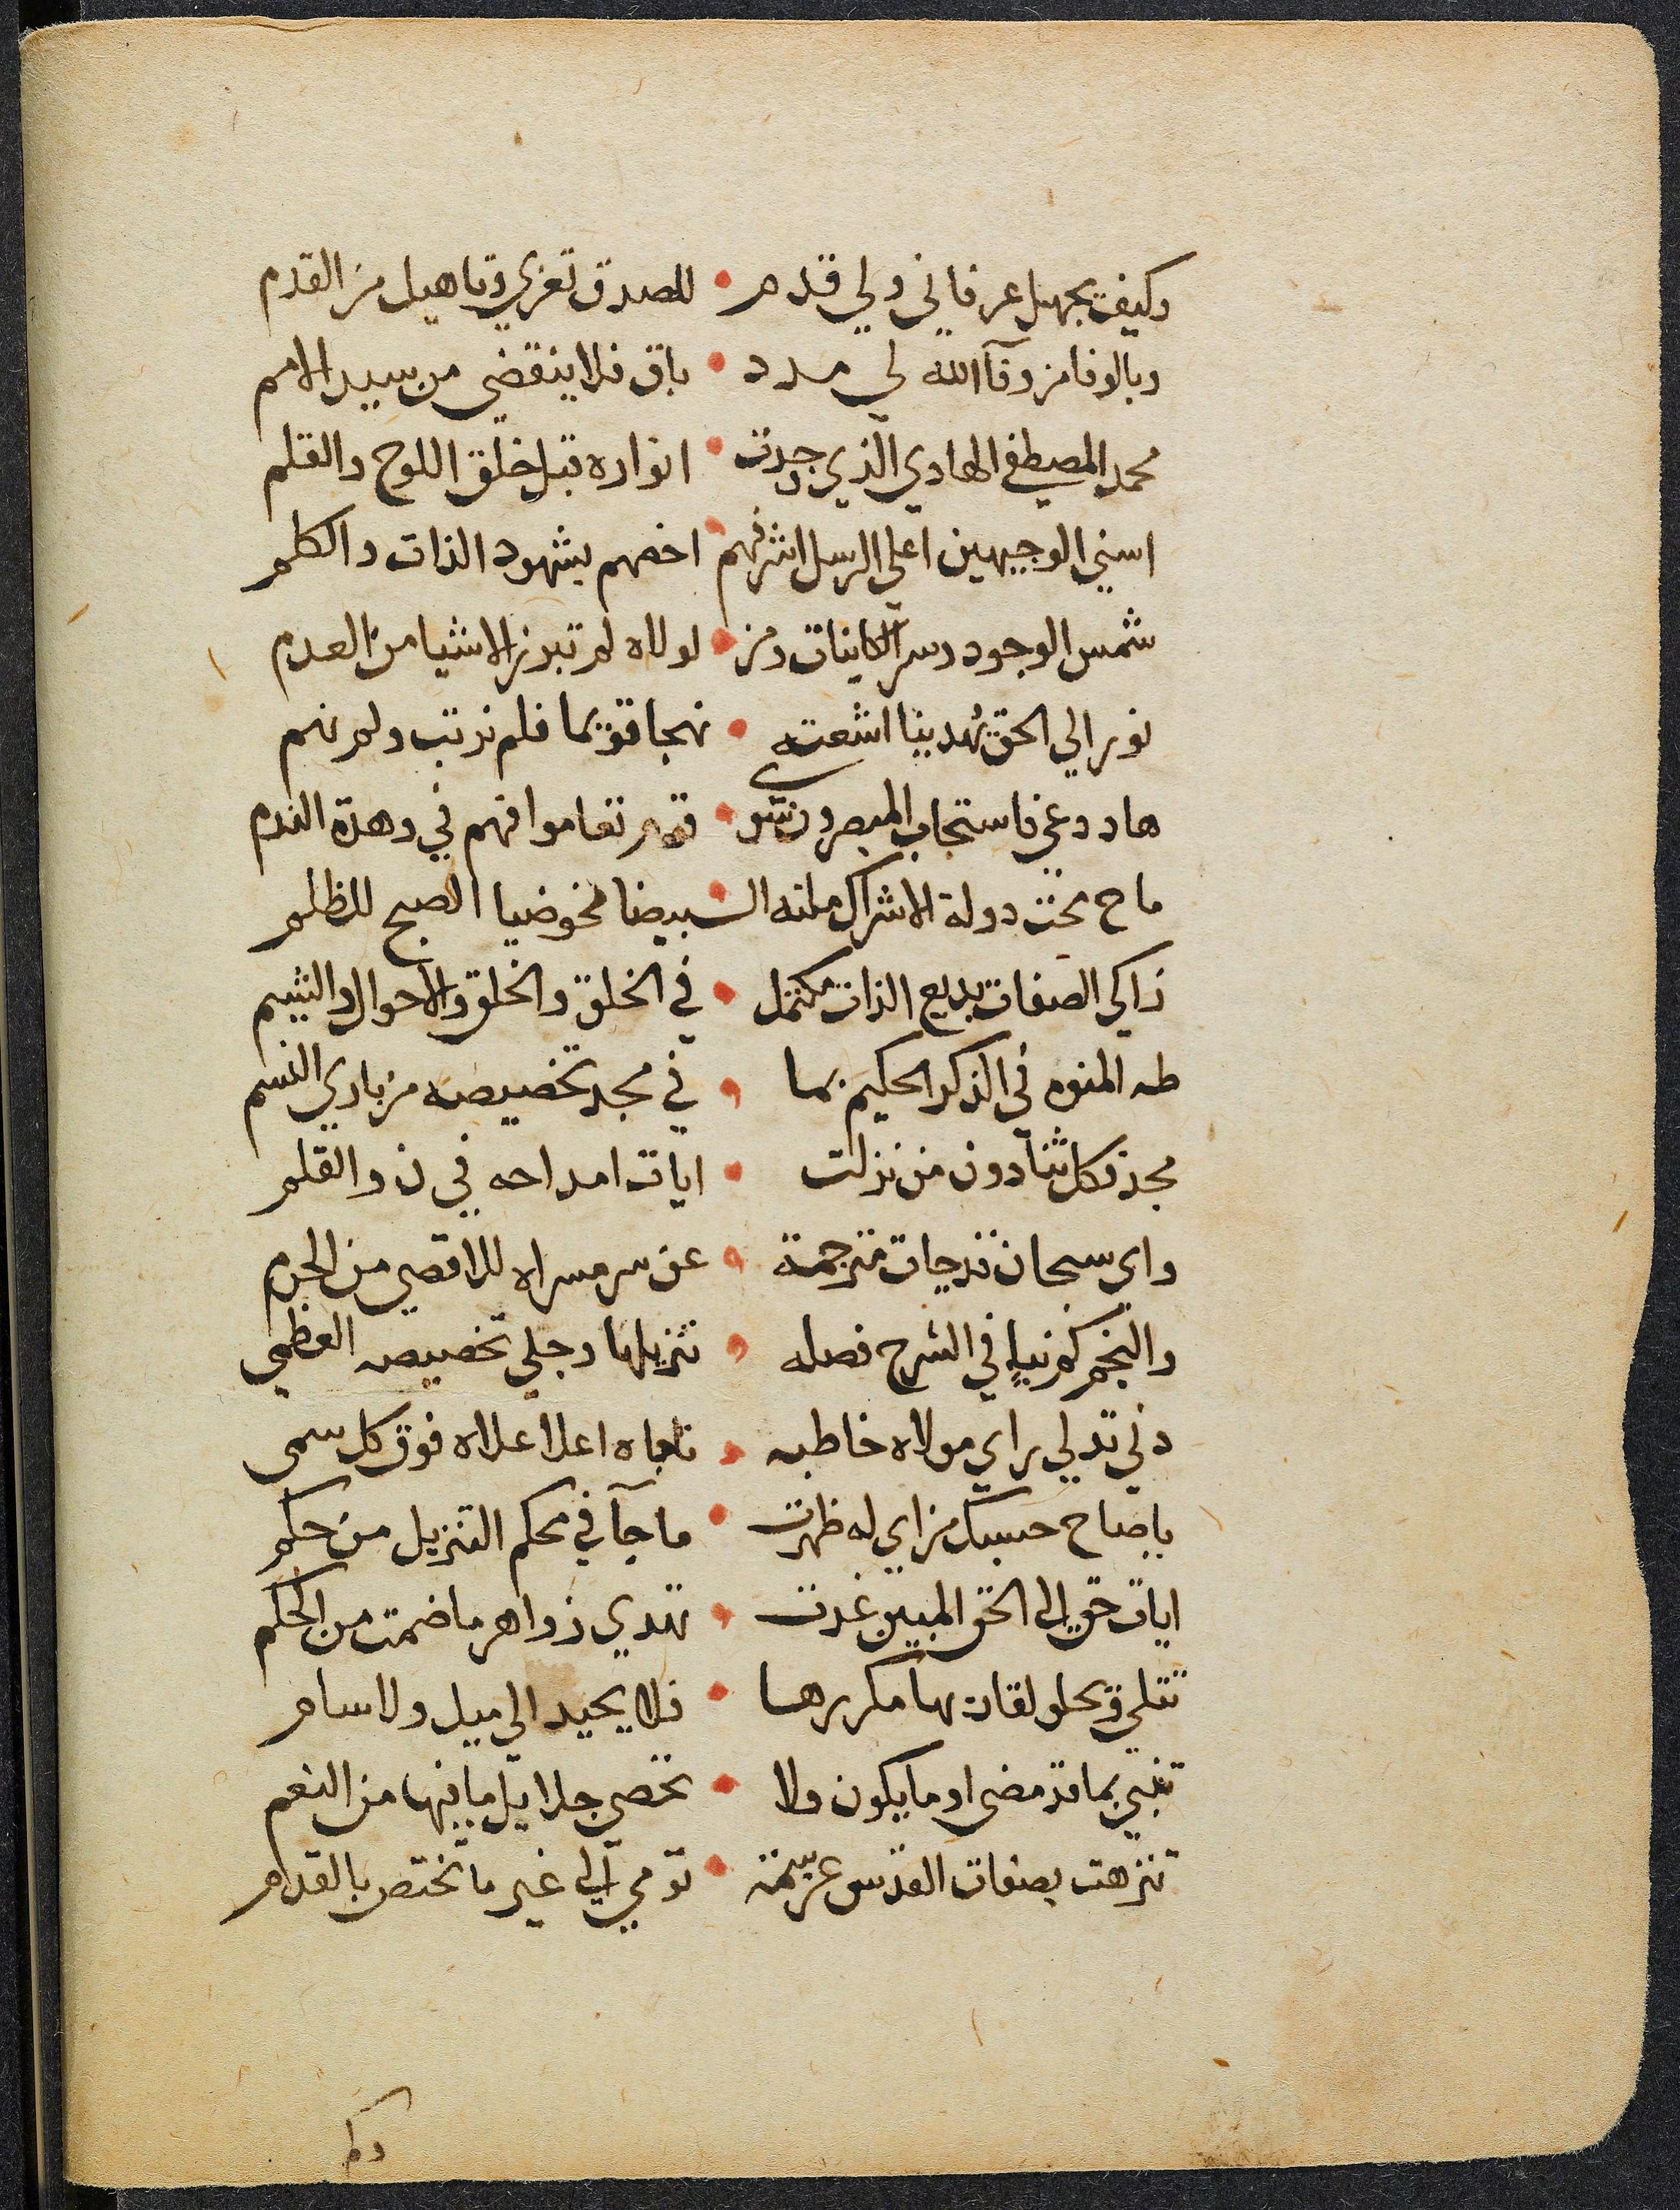 وكيف يجهل عرفاني ولي قدم • للصدق تعزي وتاهيل من القدم
وبالوفا من وفآ الله لي مدد • باق فلا ينقضي من سيد الامم
محمد المصطفي الهادي الذي وجدت • انواره قبل خلق اللوح والقلم
اسني الوجيهين اعلي الرسل اشرفهم • اخصهم بشهود الذات والكلم
شمس الوجود وسر الكاينات ومن • لولاه لم تبرز الاشيا من العدم
نور الي الحق تهدينا اشعته • نهجا قويما فلم نرتب ولم نهم
هاد دعي فاستجاب المبصرون سوي • قوم تعاموا فهم في وهدة الندم
ماح محت دولة الاشراك ملته الـ • ـبيضا محو ضيا الصبح للظلم
زاكي الصفات بديع الذات مكتمل • في الخلق والخلق والاحوال والشيم
طه المنوه في الذكر الحكيم بما • في مجد تخصيصه من باري النسم
مجد فكل ثنا دون من نزلت • ايات امداحه في ن والقلم
واي سبحان قد جات مترجمة • عن سر مسراه للاقصي من الحرم
والنجم كم نبإ في الشرح فصله • تنزيلها وجلي تخصيصه العظمي
دني تدلي راي مولاه خاطبه • ناجاه اعلا علاه فوق كل سمي
ياصاح حسبك من اي له ظهرت • ما جآ في محكم التنزيل من حكم
ايات حق الي الحق المبين غدت • تهدي زواهر ما ضمت من الحكم
تتلي فيحلو لقارئها مكررها • فلا يحيد الي ميل ولا سام
تنبي بما قد مضي او ما يكون ولا • تحصي جلايل ما فيها من النعم
تنزهت بصفات القدس عن سمة • تومي الي غير ما تختص بالقدم
وكم